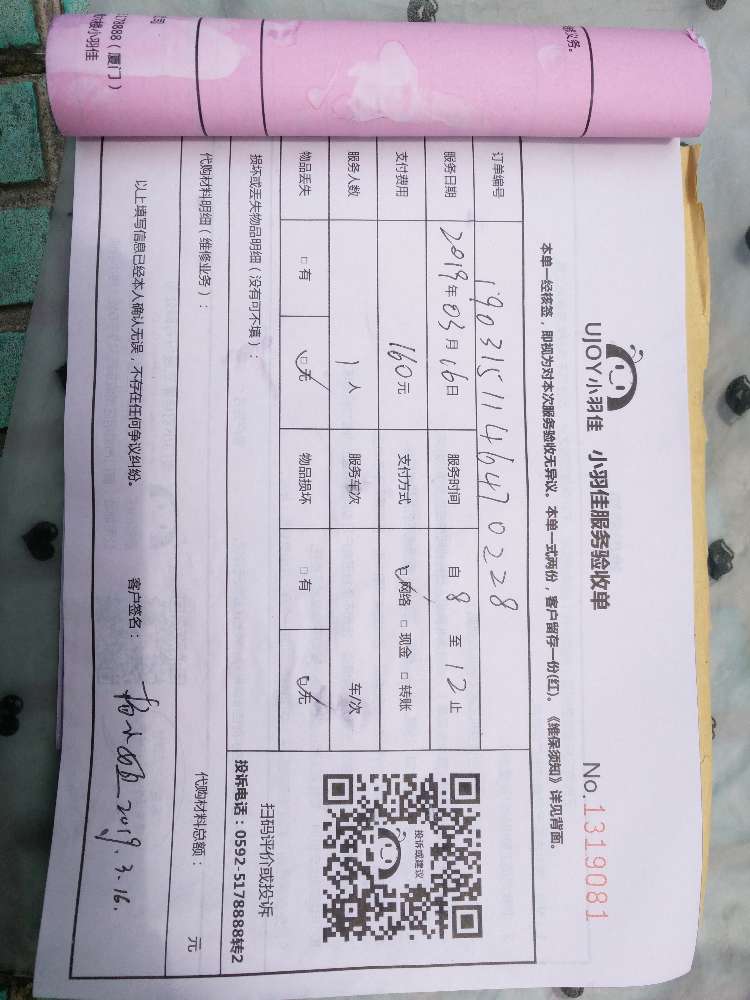 司
178888（厦门）
小羽佳
UJOY小羽佳
小羽佳服务验收单
No.1319081
本单一经核签，即视为对本次服务验收无异议。本单一式两份，客户留存一份(红)。《维保须知》详见背面。
订单编号 190315114647 0228
服务日期 2019年03月16日 服务时间 自 8 至 12 止
支付费用 160元 支付方式 □网络 □现金 □转账
服务人数 1人 服务车次 车/次
物品丢失 □有 □无 物品损坏 □有 □无
投诉或建议
扫码评价或投诉
投诉电话：0592-5178888转2
损坏或丢失物品明细（没有可不填）：
代购材料明细（维修业务）： 代购材料总额： 元
以上填写信息已经本人确认无误，不存在任何争议纠纷。 客户签名： 2019.3.16.